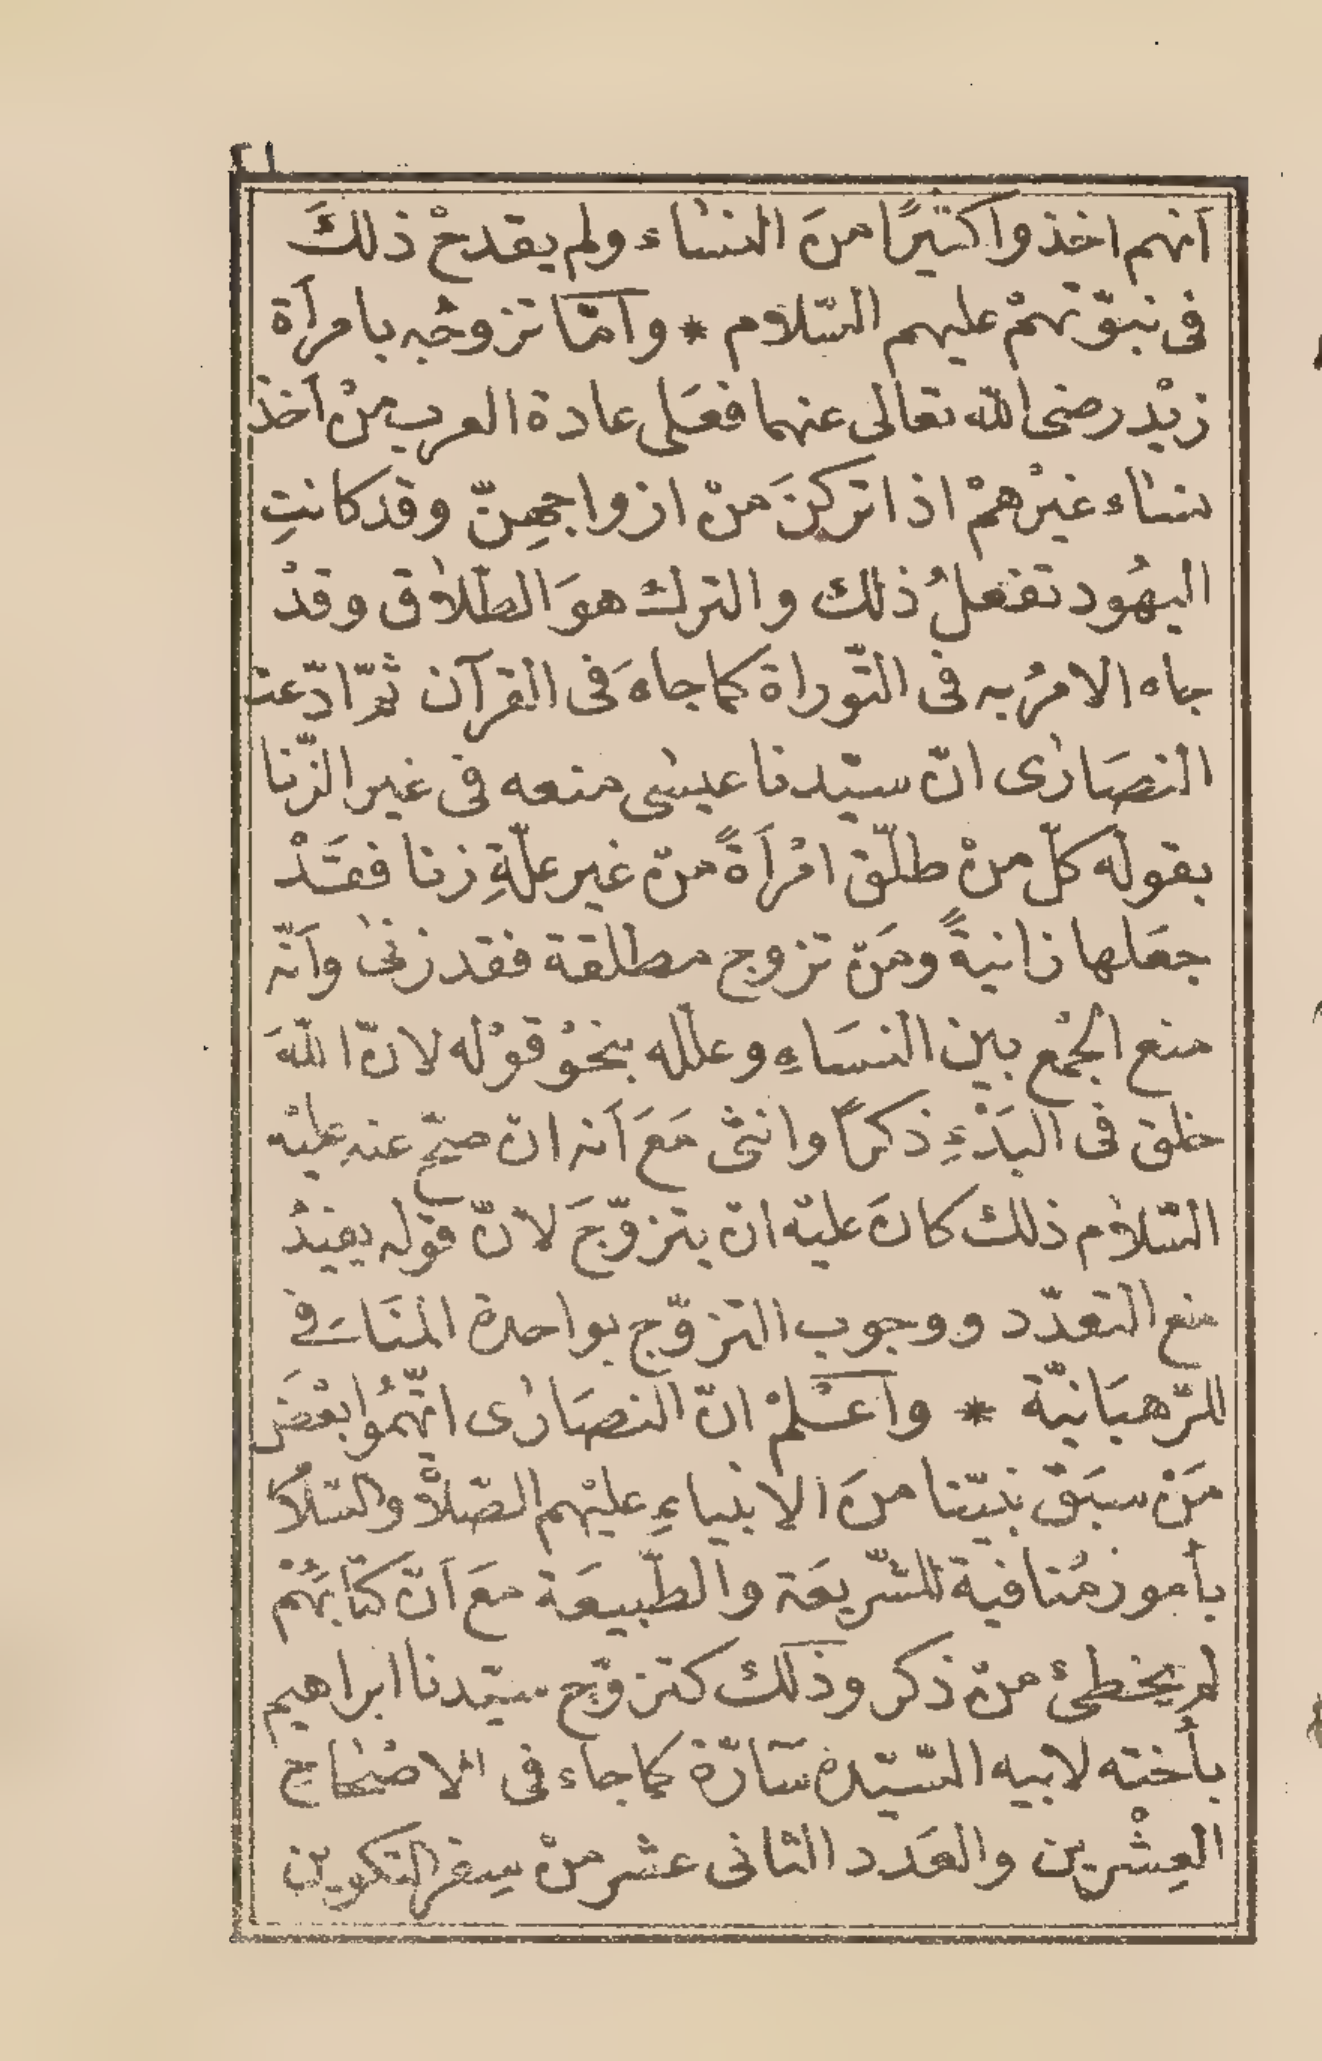 ٢١
أنهم اخذوا كثيرًا منَ النساء ولم يقدحْ ذلكَ
فى نبوّتهمْ عليهم السّلام * وأمّا تزوجُه بامرأة
زيْد رضى الله تعالى عنهما فعَلى عادة العرب منْ أخذ
نساء غيرْهمْ اذا تركنَ منْ ازواجهِنّ وقد كانتِ
اليهُود تفعلُ ذلك والترك هوَ الطّلاق وقدْ
جاء الامرُ به فى التّوراة كما جاءَ فى القرآن ثمّ ادّعت
النصَارٰى انّ سيّدنا عيسٰى منعه فى غير الزّنا
بقوله كلّ منْ طلّق امْرأةً منْ غير علّةِ زنا فقَدْ
جعَلها زانيةً ومَنْ تزوج مطلقة فقد زنٰى وأنّه
منع الجمْع بين النسَاءِ وعلله بنحْو قوْله لانّ اللهَ
خلق فى البَدْءِ ذكرًا وانثى مَعَ أنه انْ صحّ عنه عليْه
السّلام ذلك كانَ عليْه انْ يتزوّجَ لانّ قوْله يفيدُ
منع التعدّد ووجوب التزوّج بواحدة المنَافى
للرّهبَانيّة * وأعْلمْ انّ النصَارٰى اتّهمُوا بعْضَ
مَنْ سبَقَ نبيّنا منَ الانبياءِ عليْهم الصّلاة والسّلام
بأمور مُنافية للشّريعَة والطّبيعَة معَ أنّ كتابَهُمْ
لم يخطئ منْ ذكر وذلك كتزوّج سيّدنا ابراهيم
بأخته لابيه السّيّدة سَارّة كما جاء فى الاصْحاح
العِشْرين والعَدد الثانى عشر منْ سِفر التكوين